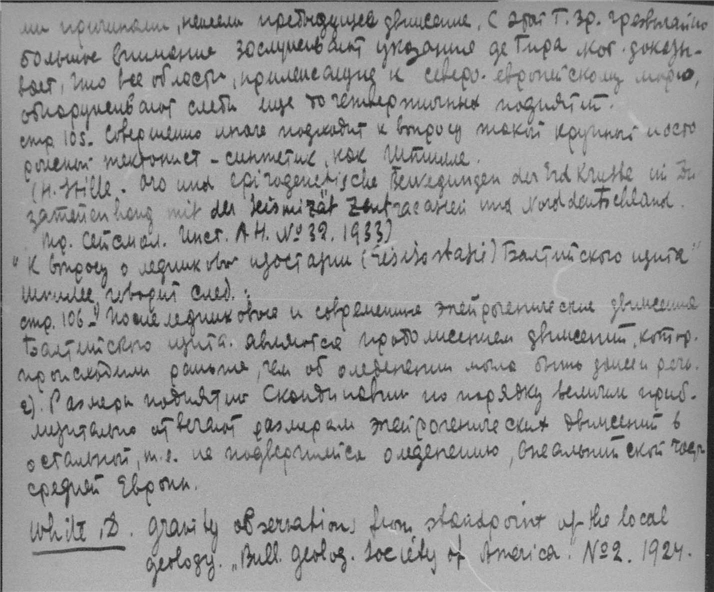 ми причинами, нежели предыдущее движение. С этой т. зр. чрезвычайно
большое внимание заслуживают указания де Геера, кот. доказы-
вает, что все области, прилежащие к северо-европейскому морю,
обнаруживают следы еще до четвертичных поднятий.
стр 105- Совершенно иначе подходит к вопросу такой крупный исто
рический тектонист-синтетик, как Штилле.
(H. Stille. Oro und epirogenetische Bewegungen der Erdkruste in Zu
zammenhang mit der Seismizität Zentralasien und Norddeutschland.
Тр. Сейсмол. Инст. А.Н. №32. 1933)
"К вопросу о ледниковой изостазии Балтийского щита"
Штилле говорит след.:
стр. 106-" Послеледниковые и современные эпейрогенические движения
Балтийского щита являются продолжением движений, котор.
происходили раньше, чем об оледенении могла быть речь.
2). Размеры поднятия Скандинавии по порядку величин приб-
лизительно отвечают размерам эпейрогенических движений в
остальной, т.е. не подвергшейся оледенению, части
средней Европы.
White, D. Gravity observations from standpoint of the local
geology. „Bull. geolog. Society of America. №2. 1924.